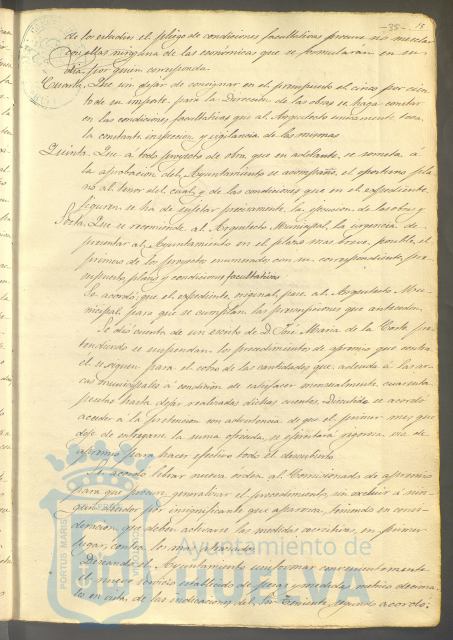 -35- 18
de los estudios el pliego de condiciones facultativas procure no mezclar
con ellas ninguna de las económicas que se formularán en su
dia por quien corresponda.
Cuarta. Que sin dejar de consignar en el presupuesto el cinco por cien
to de su importe para la Direccion de las obras se haga constar
en las condiciones facultativas que al Arquitecto unicamente toca
la constante inspeccion y vigilancia de las mismas
Quinta. Que a todo proyecto de obra que en adelante se someta á
la aprobacion del Ayuntamiento se acompañe el oportuno pla
no al tenor del cual y de las condiciones que en el expediente
figuren se ha de sujetar precisamente la ejecucion de las obras y
Sesta. Que se recomiende al Arquitecto Municipal la urgencia de
presentar al Ayuntamiento en el plazo mas breve posible el
primero de los proyectos enumerados con su correspondiente pre
supuesto plano y condiciones facultativas
Se acordó que el expediente original pase al Arquitecto Mu
nicipal para que se cumplan las prescripciones que anteceden
Se dió cuenta de un escrito de D. José Maria de la Corte pre
tendiendo se suspendan los procedimientos de apremio que contra
él se siguen para el cobro de las cantidades que adeuda á las ar
cas municipales á condicion de satisfacer mensualmente cuarenta
pesetas hasta dejar realizadas dichas cuentas. Discutido se acordó
acceder á la pretension con advertencia de que el primer mes que
deje de entregarse la suma ofrecida, se ejercitará rigorosa via de
apremio para hacer efectivo todo el descubierto
Se acordó librar nueva orden al Comisionado de apremio
para que procure generalizar el procedimiento sin excluir á nin
gun deudor por insignificante que aparezca, teniendo en consi
deracion que deben activarse las medidas coercitivas en primer
lugar contra los mas
Deseando el Ayuntamiento uniformar convenientemente
el nuevo servicio establecido de pesas y medidas métrico decima
les en vista de las indicaciones del Sor. Teniente segundo acordó:
PORTUS MARIS
Ayuntamiento de
HUELVA